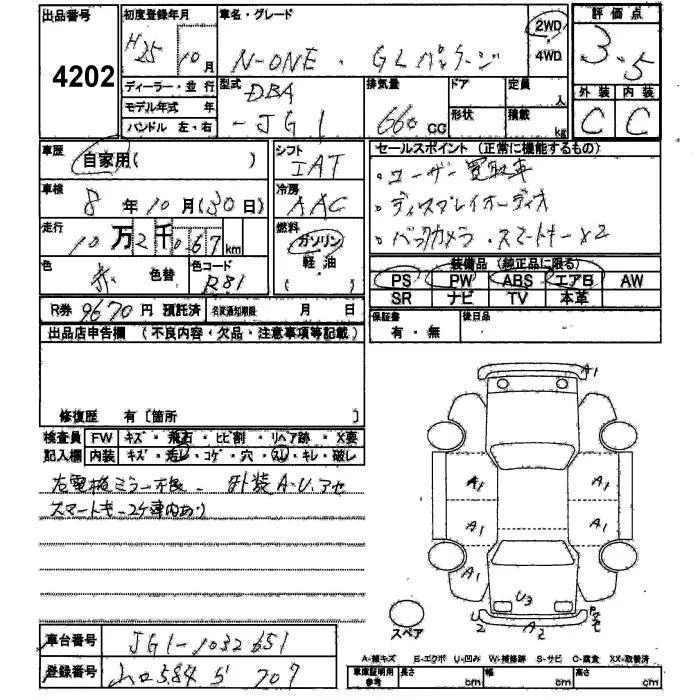 出品番号
4202
初度登録年月
H25年10月
車名・グレード
N-ONE・GLパッケージ
2WD
4WD
評価点
3.5
ディーラー・並行
モデル年式 年
ハンドル 左・右
型式
DBA
-JG1
排気量
660cc
ドア
形状
定員
人
積載
kg
外装 内装
C C
車歴
自家用( )
車検
8年10月(30日)
走行
10万2千067km
色
赤
色替
色コード
R81
シフト
IAT
冷房
AAC
燃料
ガソリン
軽油
セールスポイント(正常に機能するもの)
・ユーザー買取車
・ディスプレイオーディオ
・バックカメラ・スマートキー×2
装備品(純正品に限る)
PS PW ABS エアB AW
SR ナビ TV 本革
R券 9670円 預託済
名変通知期限 月 日
保証書
有・無
後日品
出品店申告欄(不良内容・欠品・注意事項等記載)
修復歴 有〔箇所 〕
検査員 FW キズ・飛石・ヒビ割・リペア跡・X要
記入欄 内装 キズ・汚レ・コゲ・穴・スレ・キレ・破レ
左電格ミラー不良、外装A・U、アセ
スマートキー2ケ車内あり
A1
A1 A1
A1 A1
A1
U3
U2 A2
スペア
車台番号
JG1-1032651
登録番号
山口584 707
A-線キズ E-エクボ U-凹み W-補修跡 S-サビ C-腐食 XX-取替済
車庫証明用
参考
長さ cm
幅 cm
高さ cm